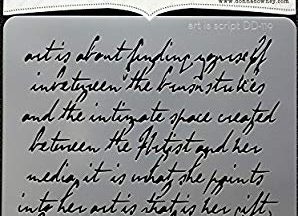 www.donnadowney.com
art is script DD-119
art is about finding yourself
inbetween the brushstrokes
and the intimate space created
between the Artist and her
media, it is what she paints
into her art is that is her gift,